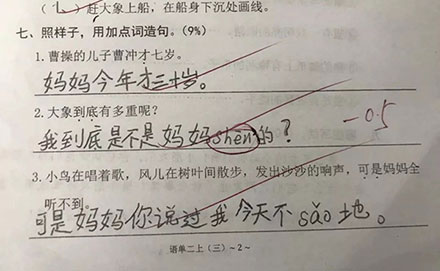 (1)赶大象上船，在船身下沉处画线。
七、照样子，用加点词造句。(9%)
1.曹操的儿子曹冲才七岁。
妈妈今年才三十岁。
2.大象到底有多重呢？
我到底是不是妈妈shēn的？
-0.5
3.小鸟在唱着歌，风儿在树叶间散步，发出沙沙的响声，可是妈妈全
听不到。
可是妈妈你说过我今天不sǎo地。
-语单二上(三)-2-